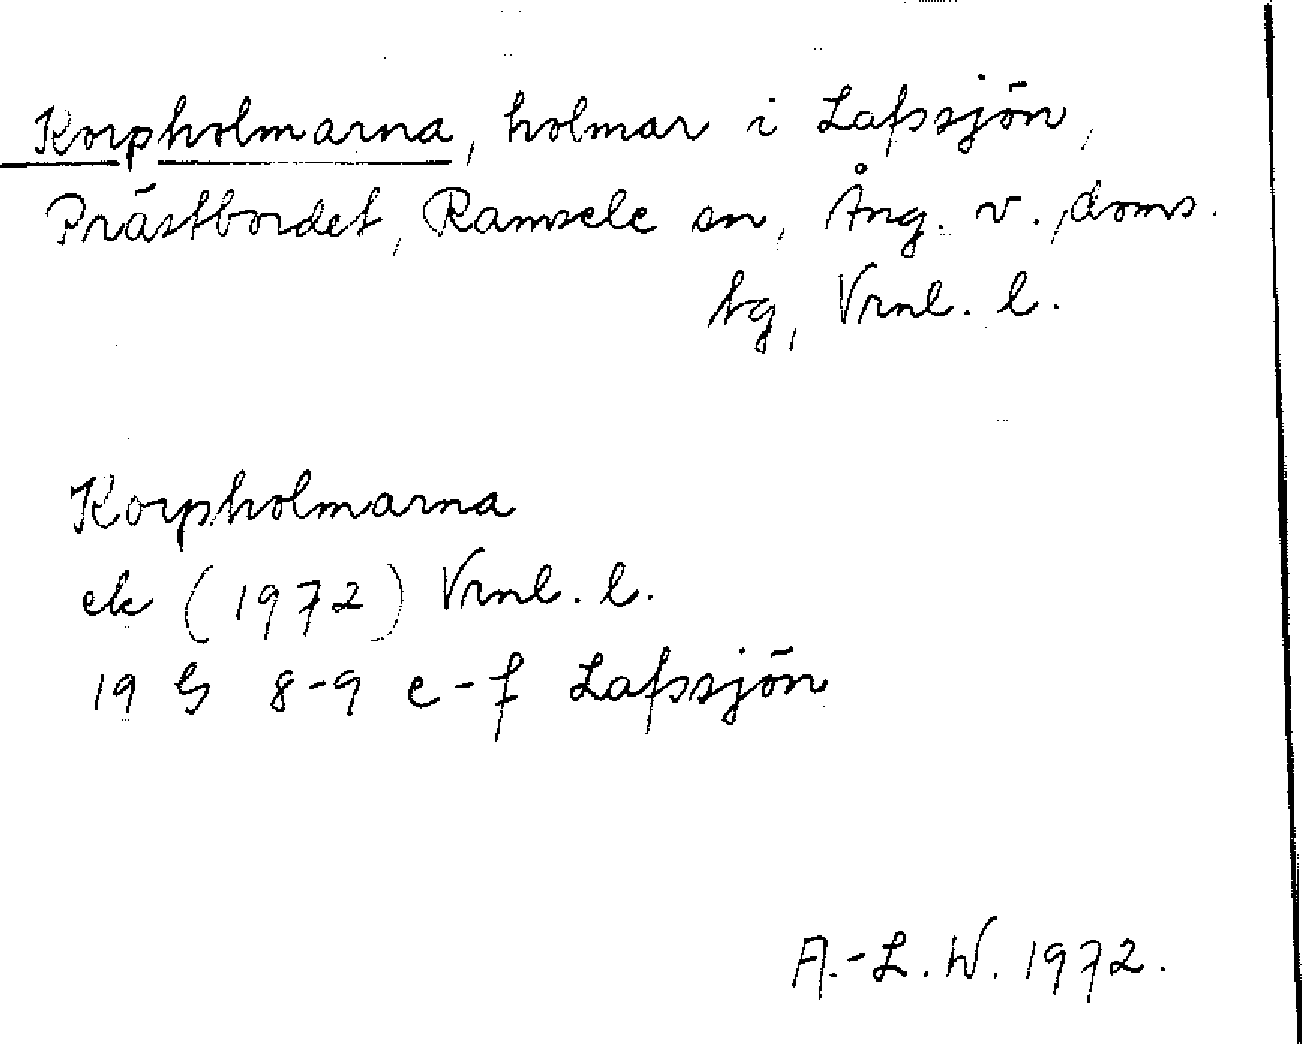 Korpholmarna, holmar i Lafssjön,
Prästbordet, Ramsele sn, Ång. v., doms.
tg, Vrnl. l.
Korpholmarna
ek (1972) Vrnl. l.
19 G 8-9 e-f Lafssjön
A.-L. W. 1972.